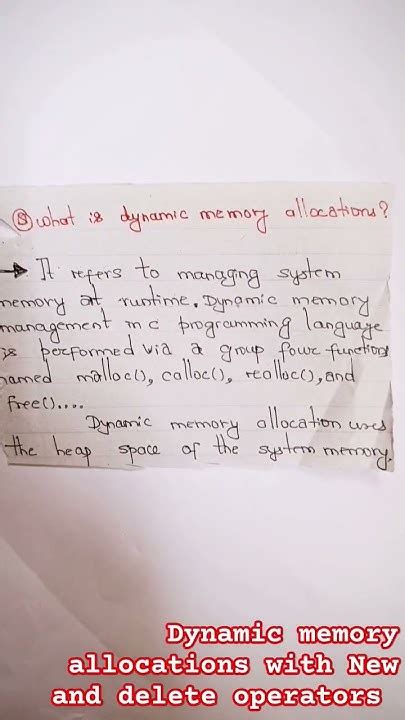 ⑧ What is dynamic memory allocations?
→ It refers to managing system
memory at runtime. Dynamic memory
management in c programming language
is performed via a group four functions
named malloc(), calloc(), realloc(), and
free()....
Dynamic memory allocation uses
the heap space of the system memory.
Dynamic memory
allocations with New
and delete operators